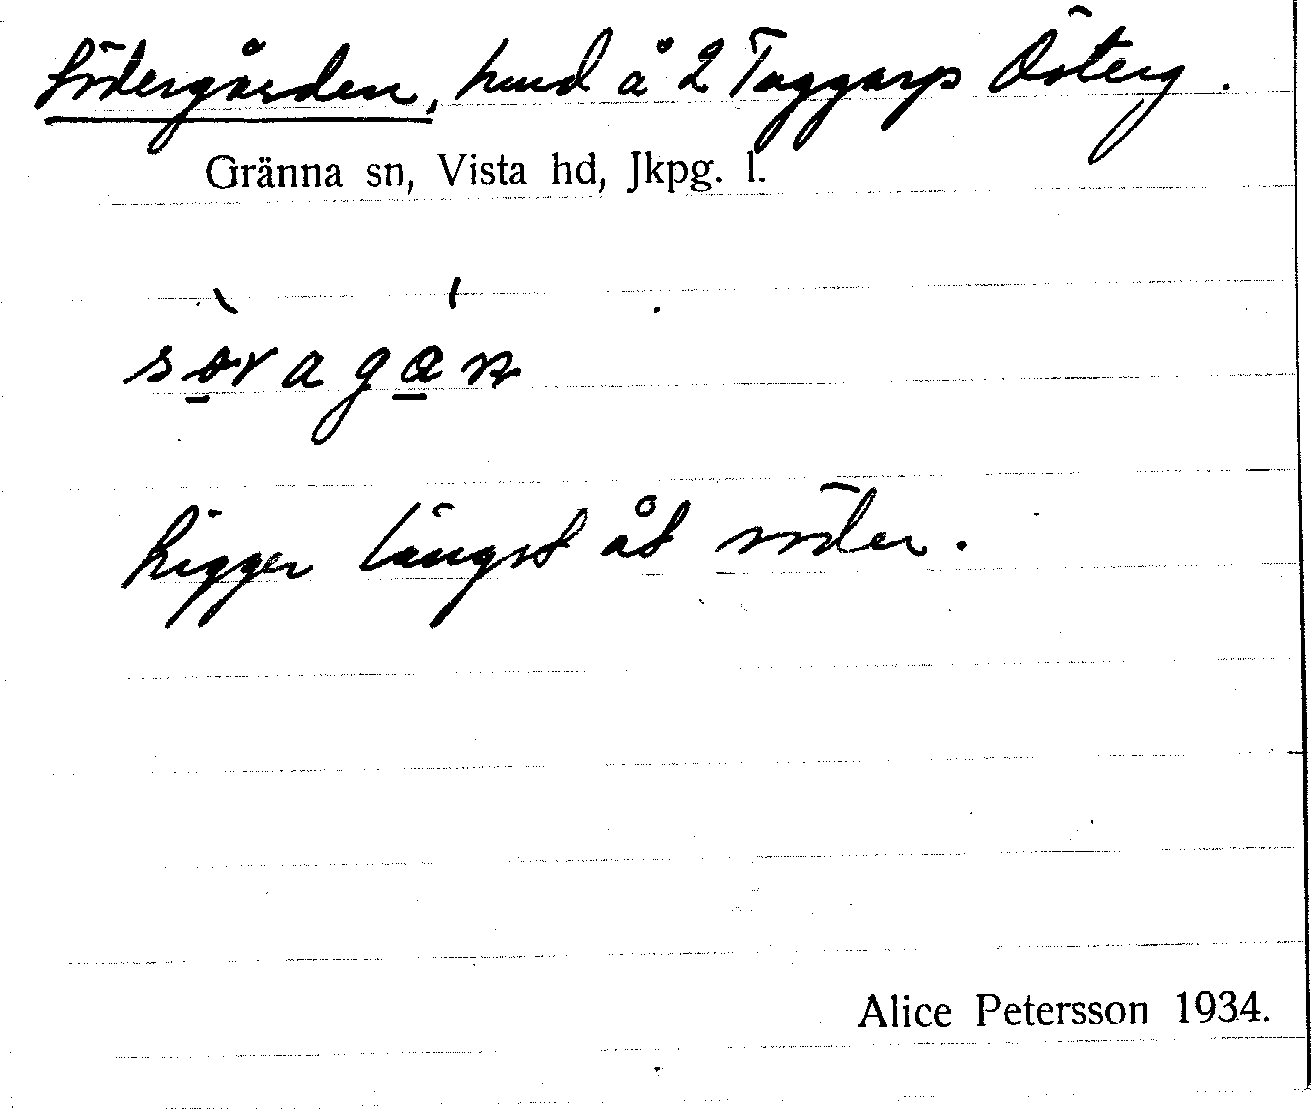 Södergården, hmd å 2 Taggarp Österg.
Gränna sn, Vista hd, Jkpg. l.
Ligger längst åt söder.
Alice Petersson 1934.